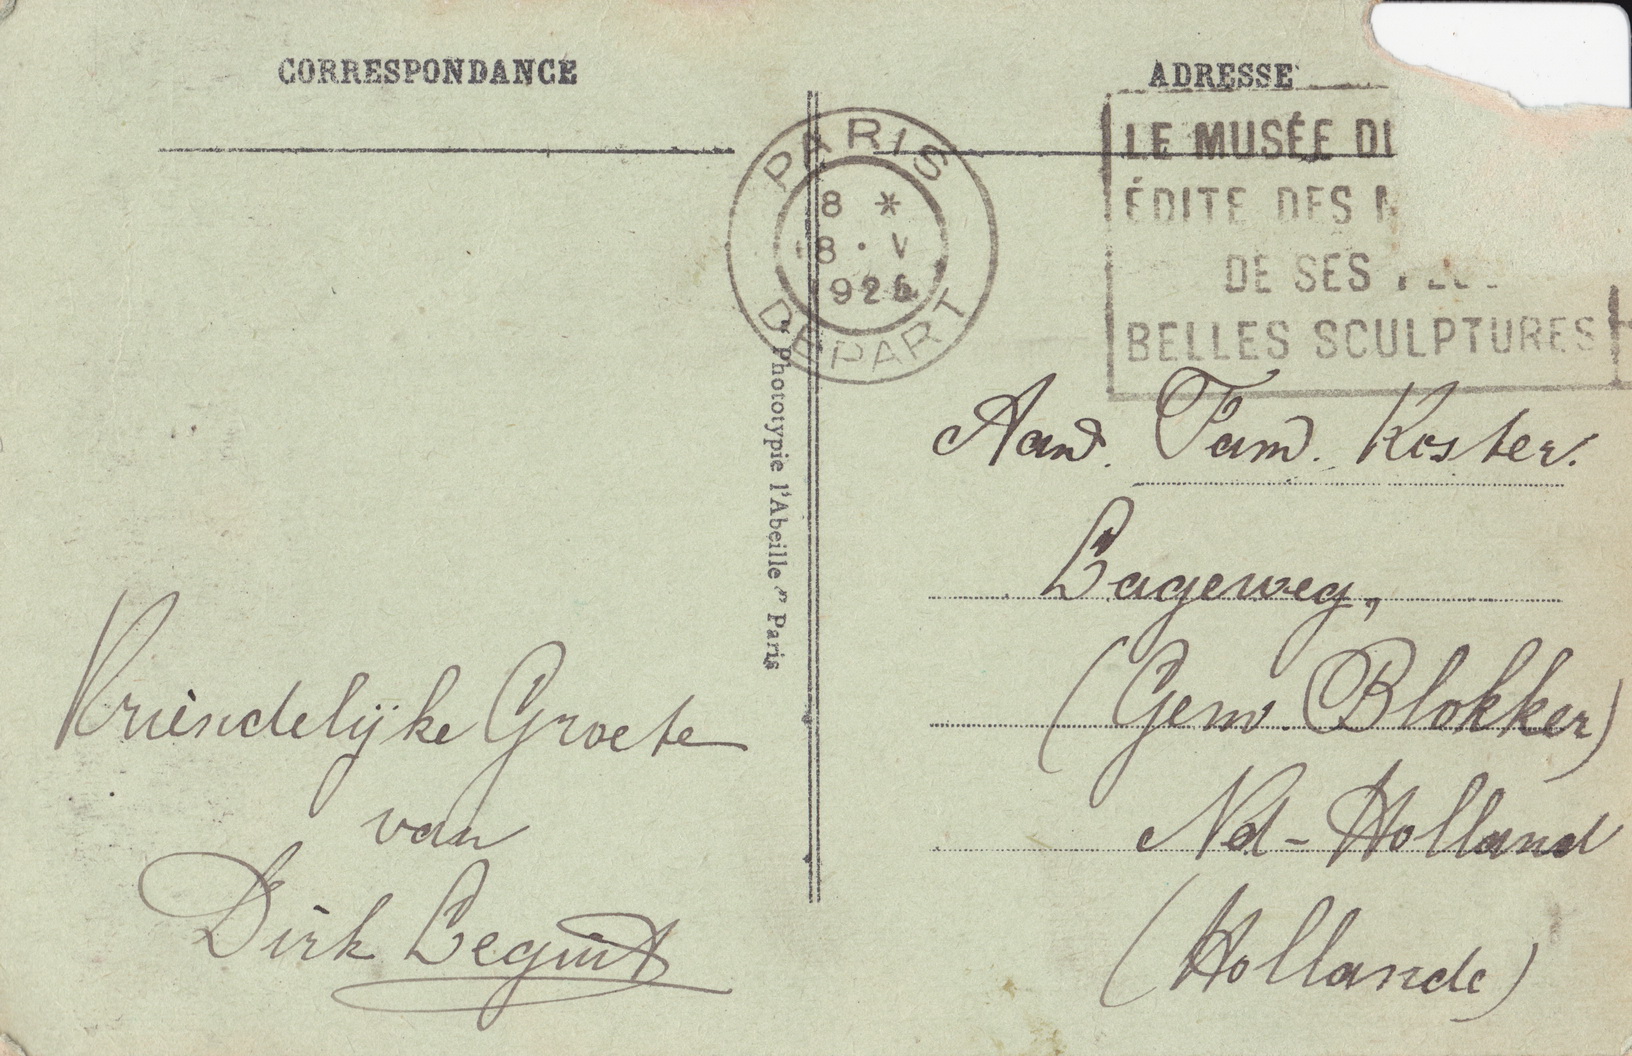 CORRESPONDANCE
Vriendelijke Groete
van
Dirk
" Phototypie l'Abeille " Paris
PARIS
8 *
8 · V
DEPART
ADRESSE
LE MUSÉE
ÉDITE DES
DE SES
BELLES SCULPTURES
Aan Fam. Koster.
Lageweg,
(Gem Blokker)
Nd-Holland
(Hollande)